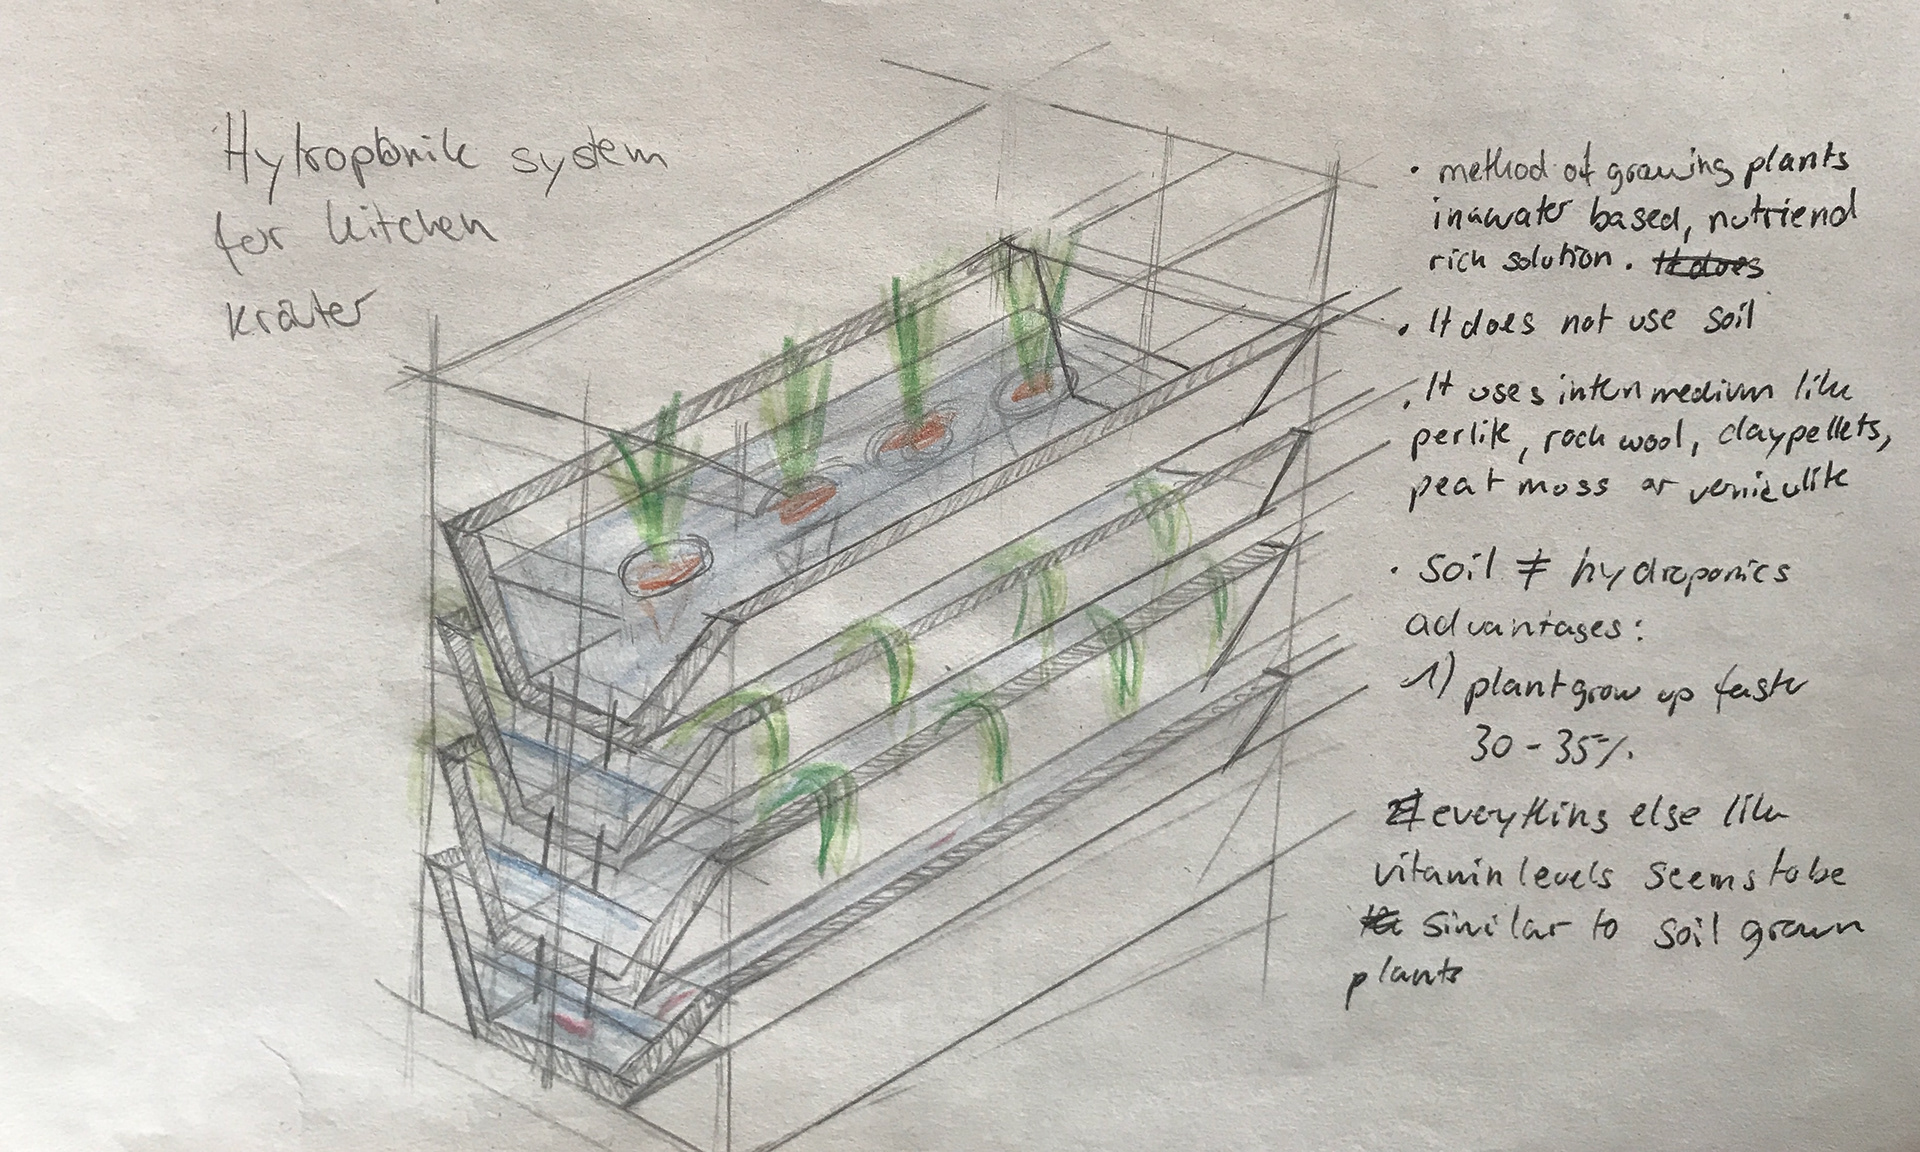 Hytroponik system
for kitchen
kräuter
• method of growing plants
in a water based, nutriend
rich solution. It does
• It does not use soil
• It uses inten medium like
perlite, rock wool, claypellets,
peat moss or vermiculite
• Soil ≠ hydroponics
advantages:
1) plant grow up faster
30 - 35%
everything else like
vitamin levels seems to be
similar to soil grown
plants